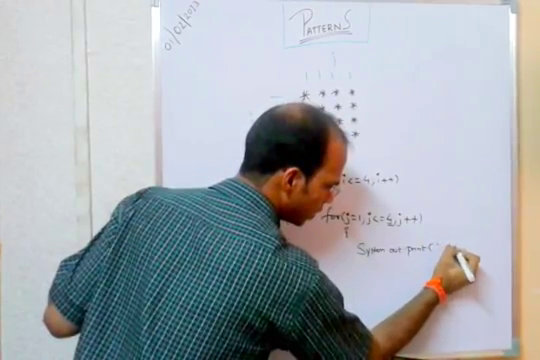 01/02/2023
PATTERNS
j
* * * *
* * *
*
*
i<=4, i++)
for(j=1, j<=4, j++)
{
System out print("